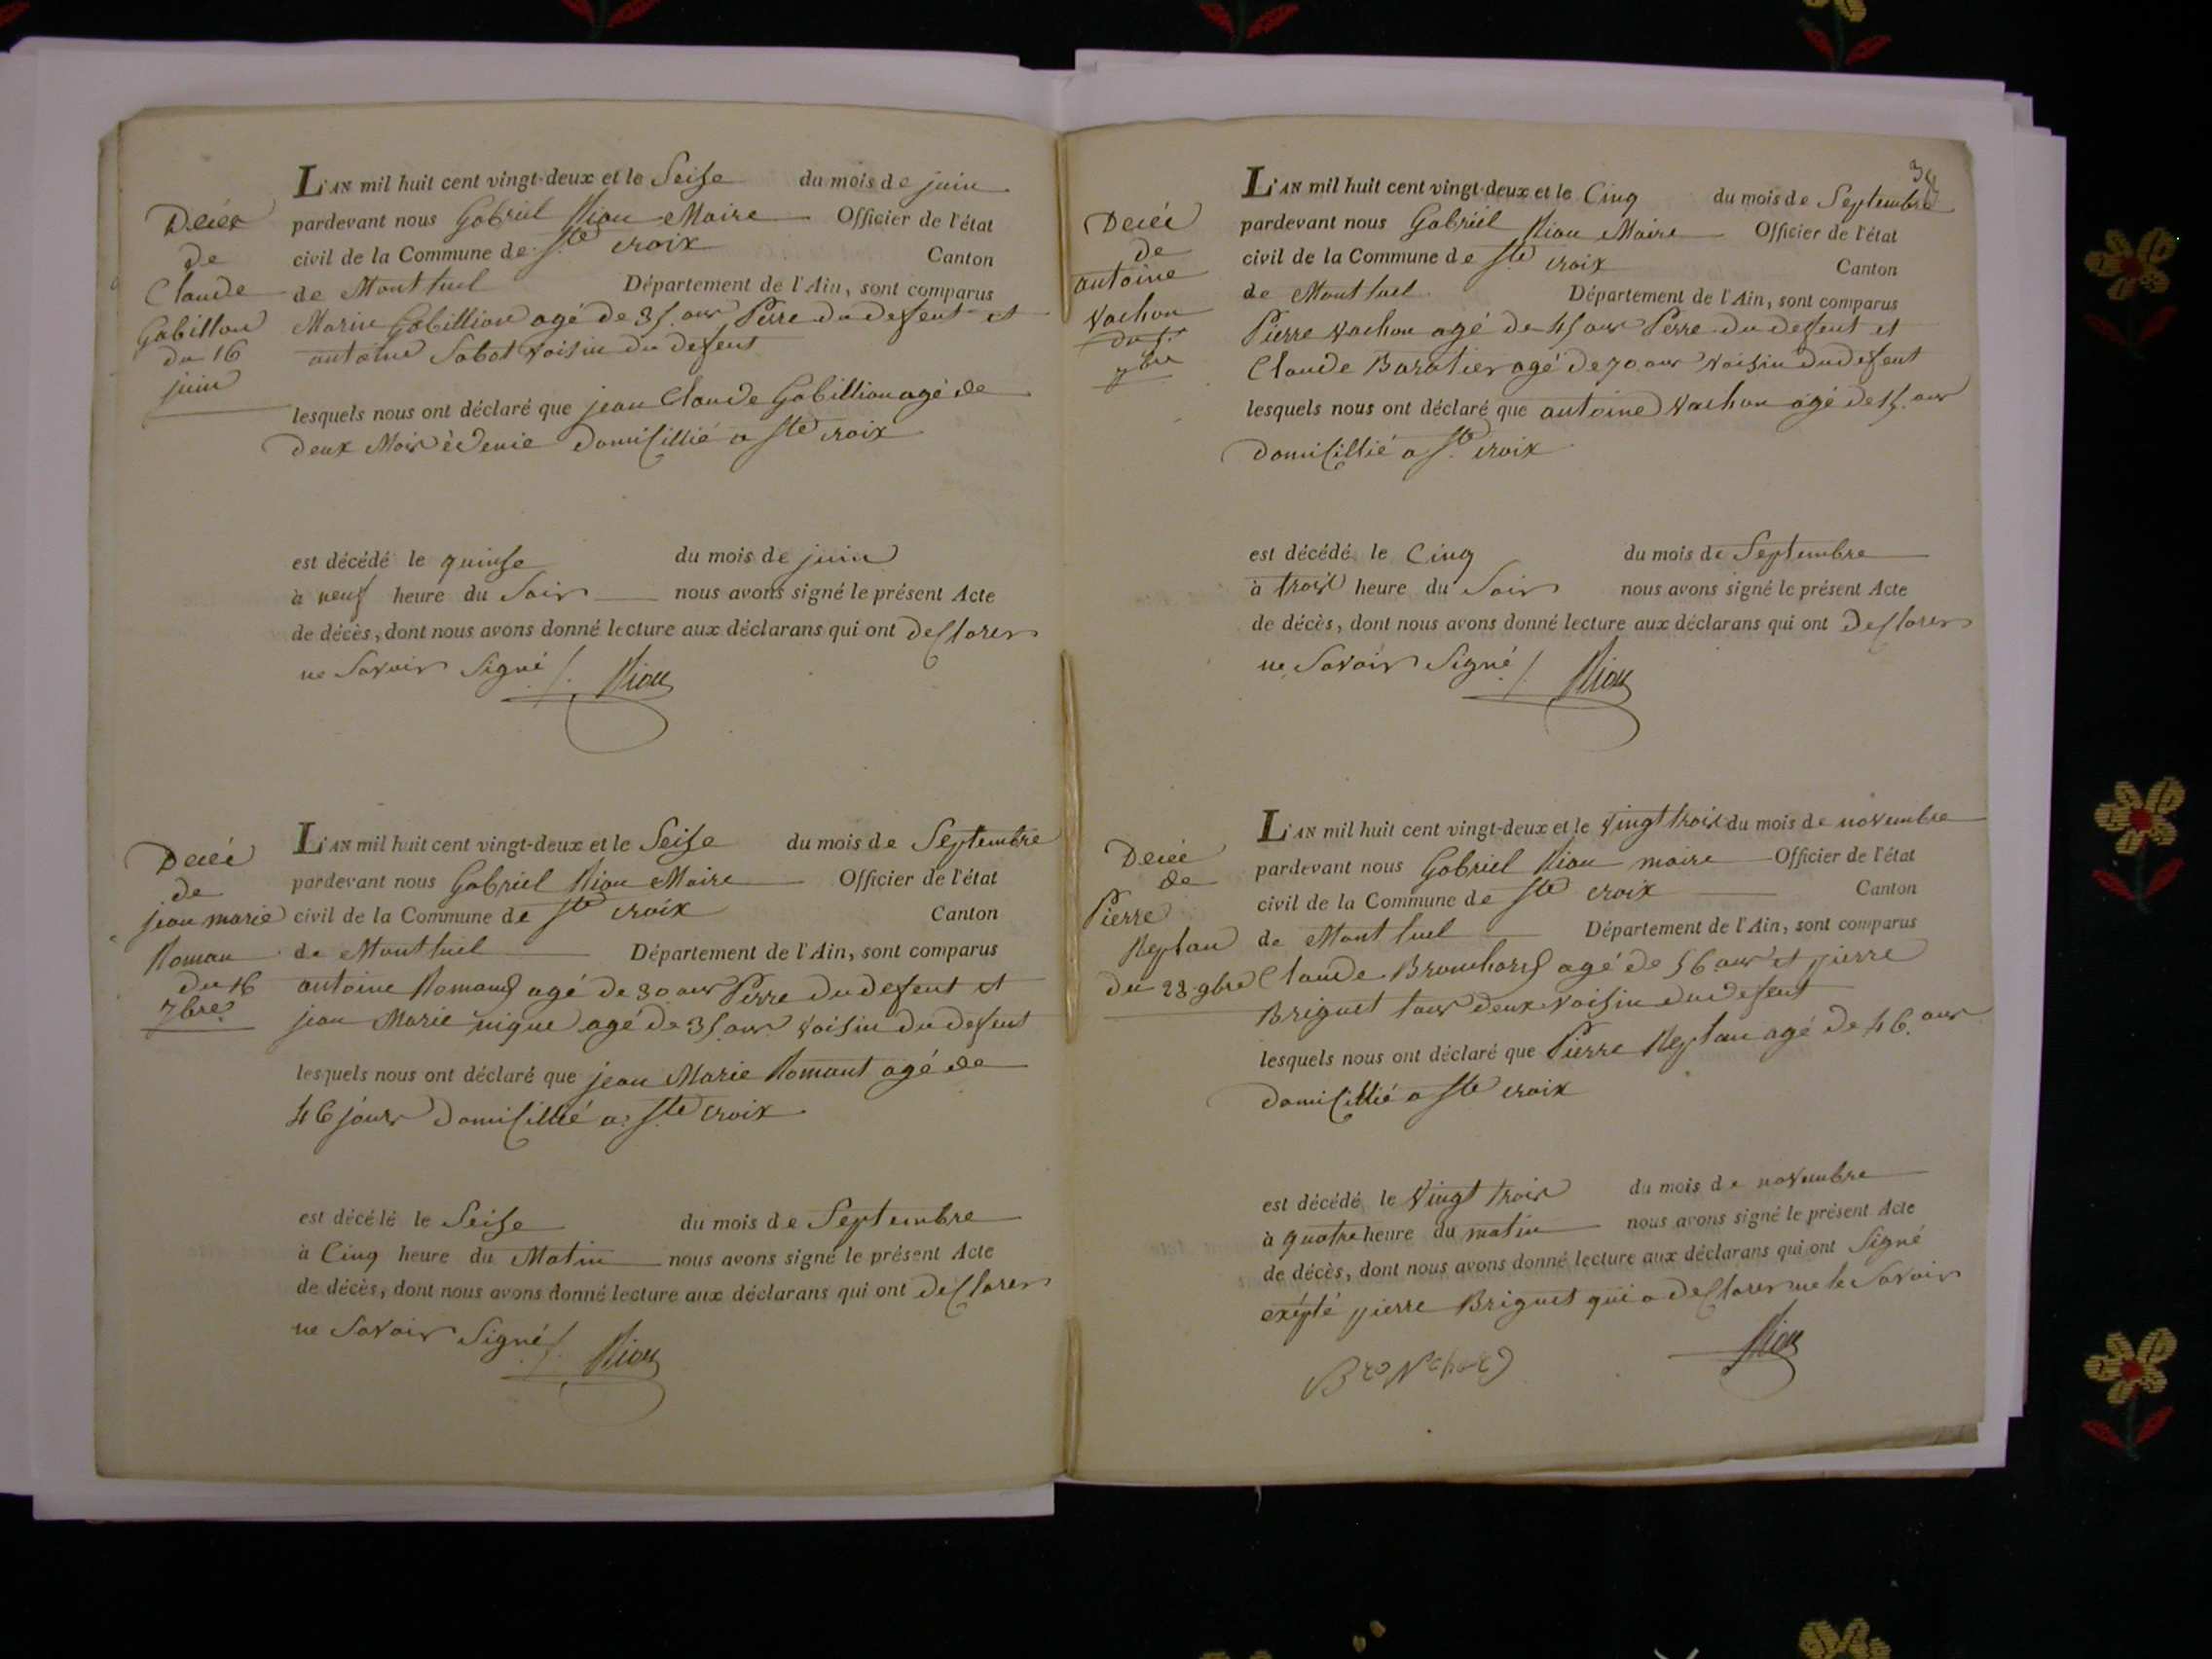 Décès
de
Claude
Gabillon
du 16
juin
L'AN mil huit cent vingt-deux et le Seise du mois de juin
pardevant nous Gabriel Riou Maire Officier de l'état
civil de la Commune de Ste croix Canton
de Montluel Département de l'Ain, sont comparus
Marin Gabillion agé de 35 ans Perre du defent et
antoine Sabot voisin du defent
lesquels nous ont déclaré que jean Claude Gabillion agé de
deux Mois è demie domicillié a Ste croix
est décédé le quinse du mois de juin
à neuf heure du Soir nous avons signé le présent Acte
de décès, dont nous avons donné lecture aux déclarans qui ont declarer
ne Savoir Signé Riou
Décé
de
jean marie
Roman
du 16
7bre
L'AN mil huit cent vingt-deux et le Seise du mois de Septembre
pardevant nous Gabriel Riou Maire Officier de l'état
civil de la Commune de Ste croix Canton
de Montluel Département de l'Ain, sont comparus
antoine Romand agé de 30 ans Perre du defent et
jean Marie nique agé de 35 ans voisin du defent
lesquels nous ont déclaré que jean Marie Romant agé de
46 jours Domicillié a Ste croix
est décélé le Seise du mois de Septembre
à Cinq heure du Matin nous avons signé le présent Acte
de décès, dont nous avons donné lecture aux déclarans qui ont declarer
ne Savoir Signé Riou
Décé
de
antoine
Vachon
du 5
7bre
L'AN mil huit cent vingt-deux et le Cinq du mois de Septembre
pardevant nous Gabriel Riou Maire Officier de l'état
civil de la Commune de Ste croix Canton
de Montluel Département de l'Ain, sont comparus
Pierre Vachon agé de 45 ans Perre du defent et
Claude Baratier agé de 70 ans voisin du defent
lesquels nous ont déclaré que antoine Vachon agé de 15 ans
Domicillié a Ste croix
est décédé le Cinq du mois de Septembre
à trois heure du Soir nous avons signé le présent Acte
de décès, dont nous avons donné lecture aux déclarans qui ont declarer
ne Savoir Signé Riou
Décé
de
Pierre
Reptan
du 23 9bre
L'AN mil huit cent vingt-deux et le vingt trois du mois de novembre
pardevant nous Gabriel Riou maire Officier de l'état
civil de la Commune de Ste croix Canton
de Montluel Département de l'Ain, sont comparus
Claude Bronchard agé de 56 ans et pierre
Briguet tous deux voisin du defent
lesquels nous ont déclaré que Pierre Reptan agé de 46 ans
domicillié a Ste croix
est décédé le vingt trois du mois de novembre
à quatre heure du matin nous avons signé le présent Acte
de décès, dont nous avons donné lecture aux déclarans qui ont Signé
exépté pierre Briguet qui a declarer ne le Savoir
Riou